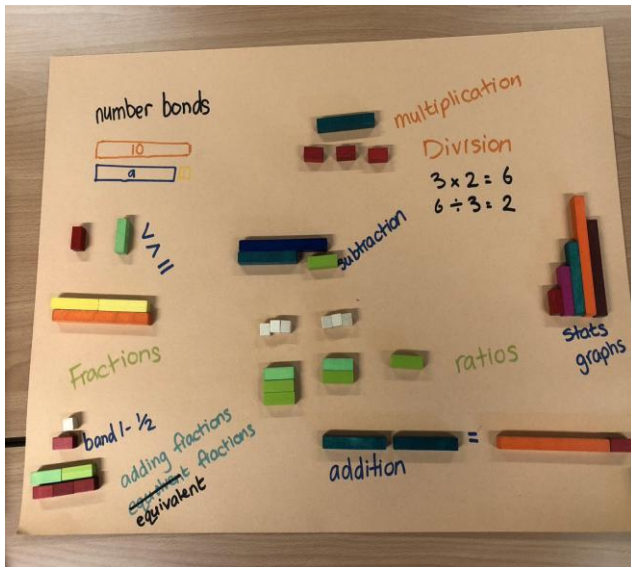 number bonds
10
9
multiplication
Division
3 x 2 = 6
6 ÷ 3 = 2
< > =
subtraction
Fractions
ratios
stats
graphs
band 1 - 1/2
adding fractions
equivalent fractions
equivalent
=
addition